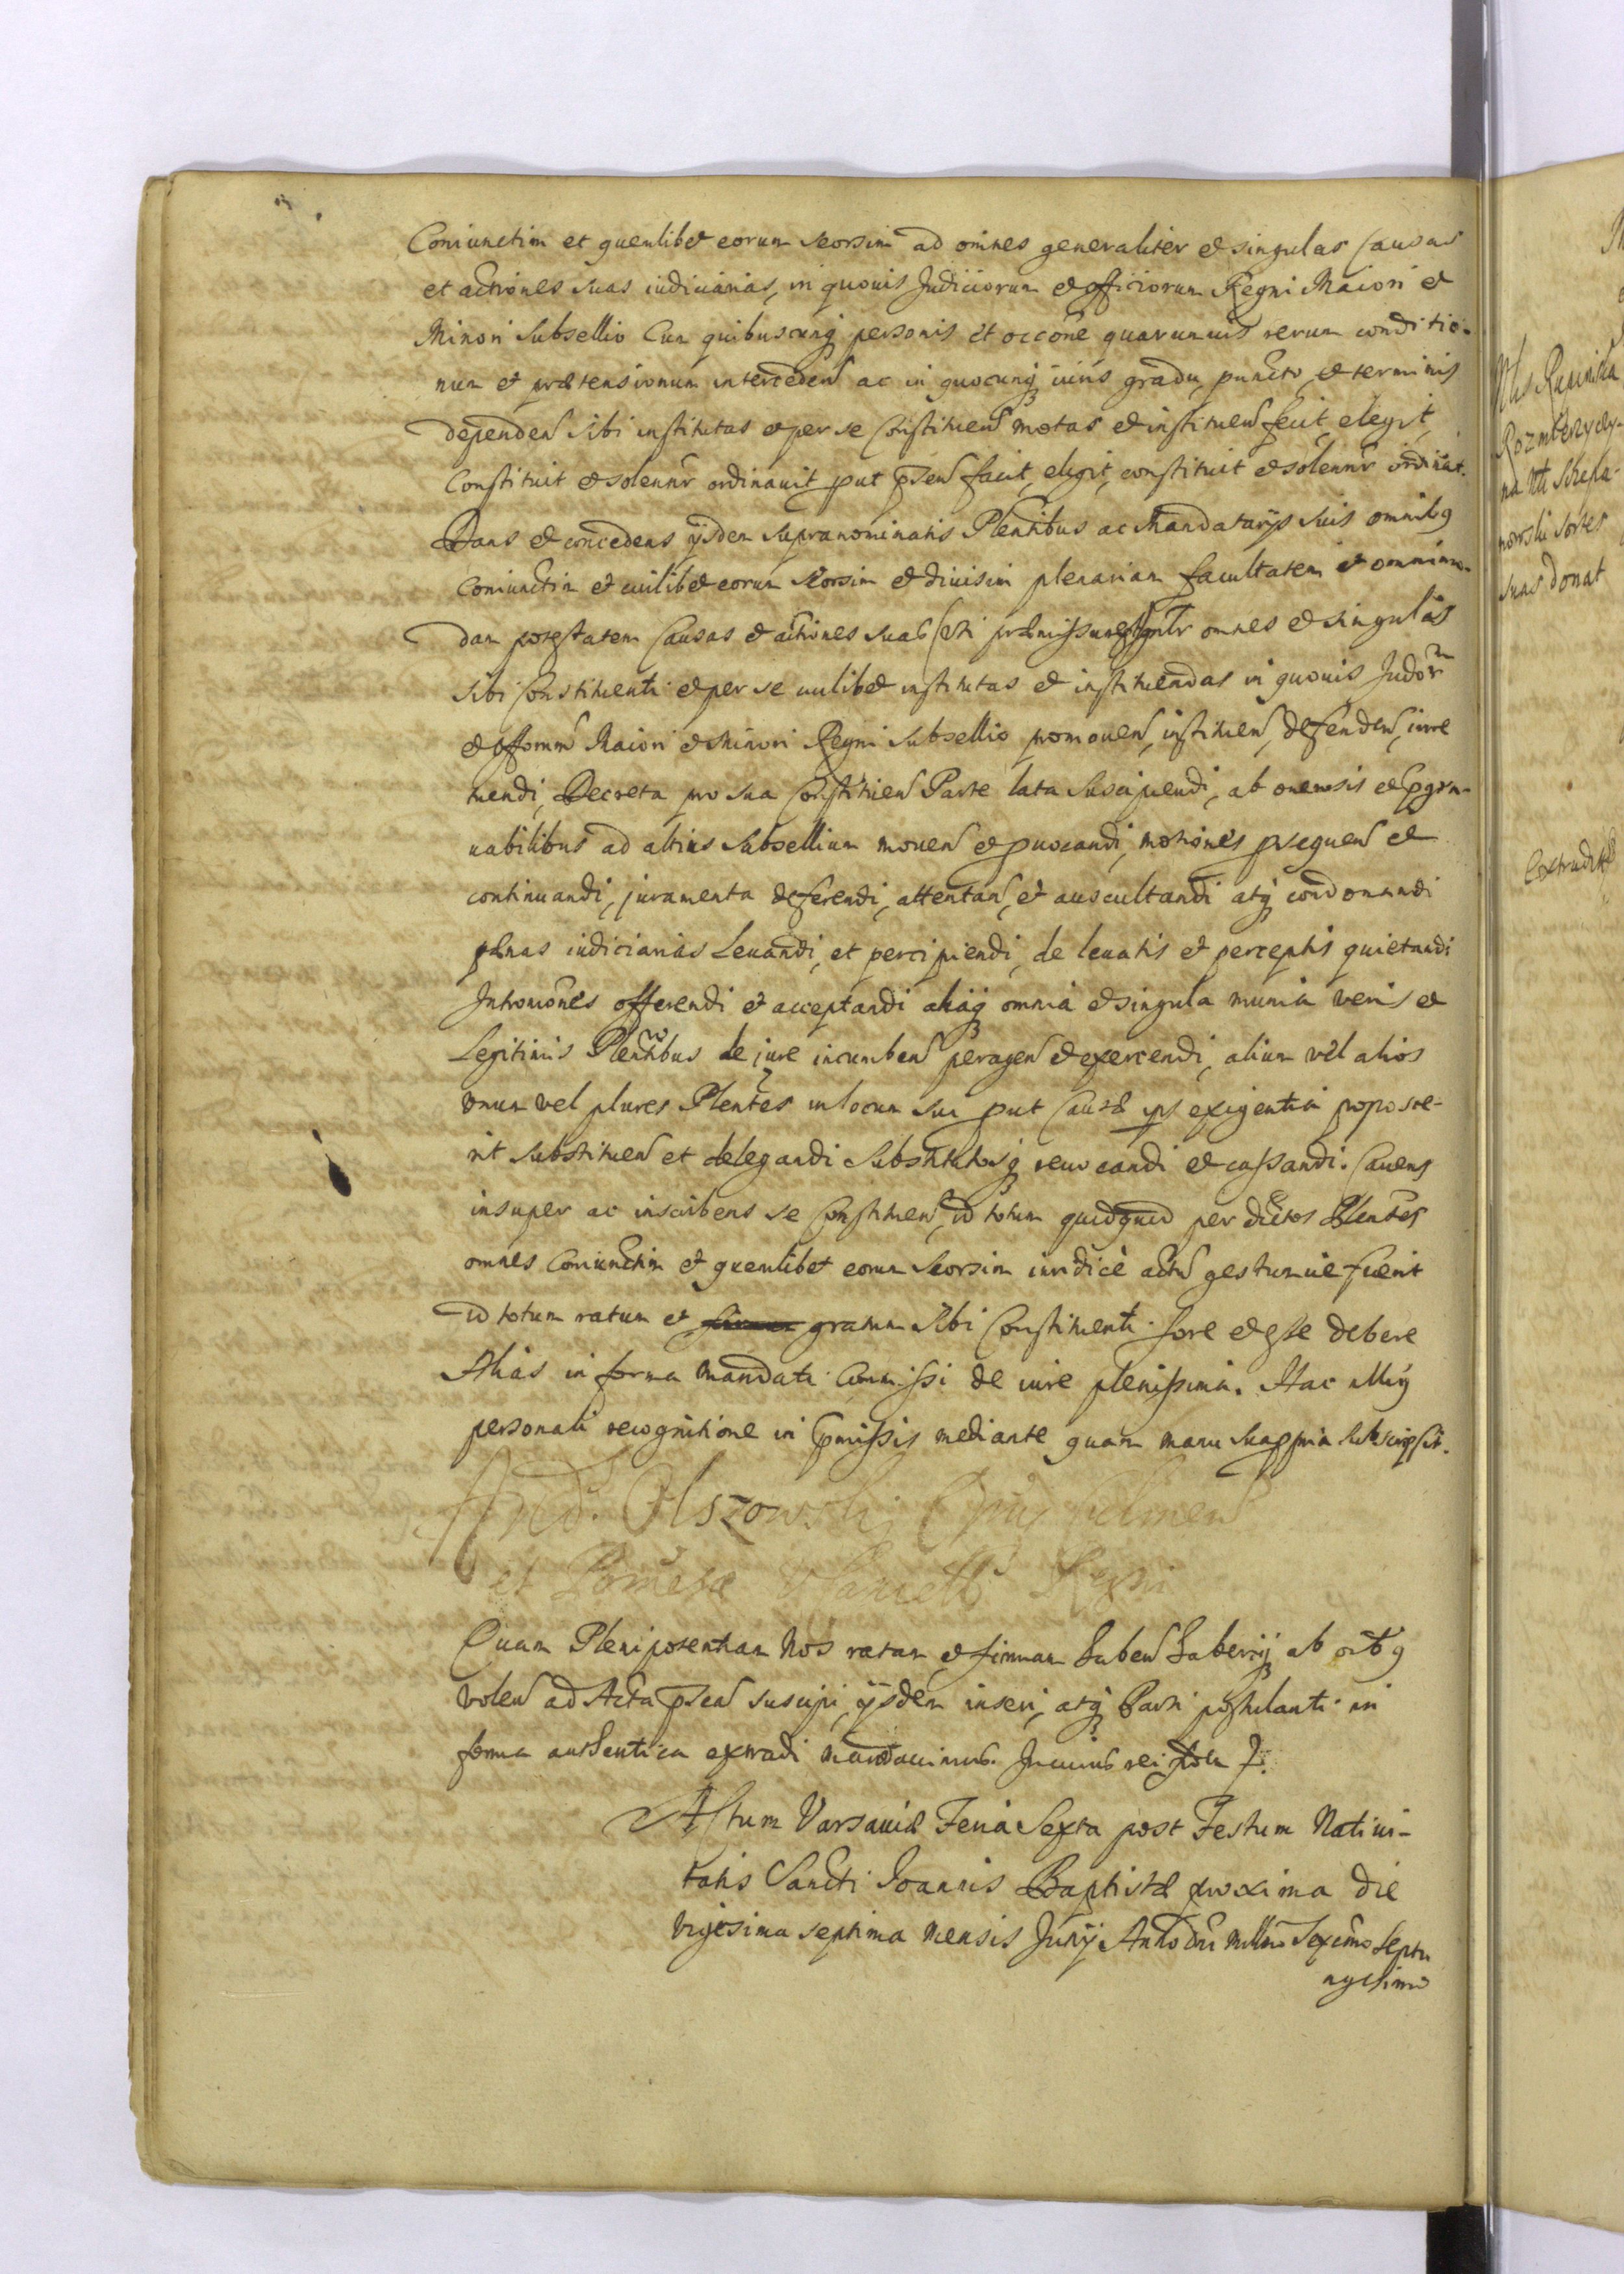 Coniunctim et quemlibet eorum seorsim ad omnes generaliter et singulas Causas
et actiones suas iudiciarias, in quouis Judiciorum et officiorum Regni Maiori et
Minori Subsellio Cum quibuscunq personis et occōne quarumuis rerum conditio-
num et prætensionum interceden ac in quocunq iuris gradu, puncto, et terminis
dependen sibi institutas et per se Constituen motas et instituen fecit, elegit,
Constituit et solennr ordinauit put p̄sen facit, eligit, constituit et solennr ordinat.
Dans et concedens ijsdem supranominatis Plentibus ac Mandatarijs suis omnibq
Coniunctim et cuilibet eorum seorsim et diuisim plenariam facultatem et omnimo-
dam potestatem Causas et actiones suas omnes et singulas
sibi Constituenti et per se cuilibet institutas et instituendas in quouis Judōrm
et offōrum Maiori et Minori Regni Subsellio promouen, instituen, defenden, iure
tuendi, Decreta pro sua Constituen Parte lata suscipiendi, ab onerosis et
uabilibus ad altius Subsellium mouen et puocandi, motiones psequen et
continuandi, juramenta deferendi, attentan, et auscultandi atq condonandi
pænas iudiciarias Leuandi, et percipiendi, de leuatis et perceptis quietandi
Intromōnes offerendi et acceptandi aliaq omnia et singula munia veris et
Legitimis Plentibus de jure incumben peragen et exercendi, alium vel alios
vnum vel plures Plentes in locum sui put Causæ ips exigentia poposce-
rit substituen et delegandi substitutosq reuocandi et cassandi. Cauens
insuper ac inscribens se Constituen, id totum quidquid per dictos Plentes
omnes Coniunctim et quemlibet eorum seorsim iuridicè actu gestumue fuerit
id totum ratum et gratum sibi Constituenti fore et esse debere
Aliàs in forma mandati Commissi de iure plenissima. Hac
personali recognitione in p̄missis mediante quam manu sua ppria subscripsit.
And. Olszowski Eppus Culmen
et Pomesa Vicecancells Regni
Quam Plenipotentiam Nos ratam et firmam haben haberiq ab omībq
volen ad Acta p̄sen suscipi, ijsdem inseri, atq Parti postulanti in
forma authentica extradi mandauimus. In cuius rei fidem
Actum Varsauiæ Feria Sexta post Festum Natiui-
tatis Sancti Joannis Baptistæ proxima die
vigesima septima mensis Junij Anno dni Millmo Sexcmo septu
agesimo
Rozmberzycz-
na
nowski sortes
suas donat